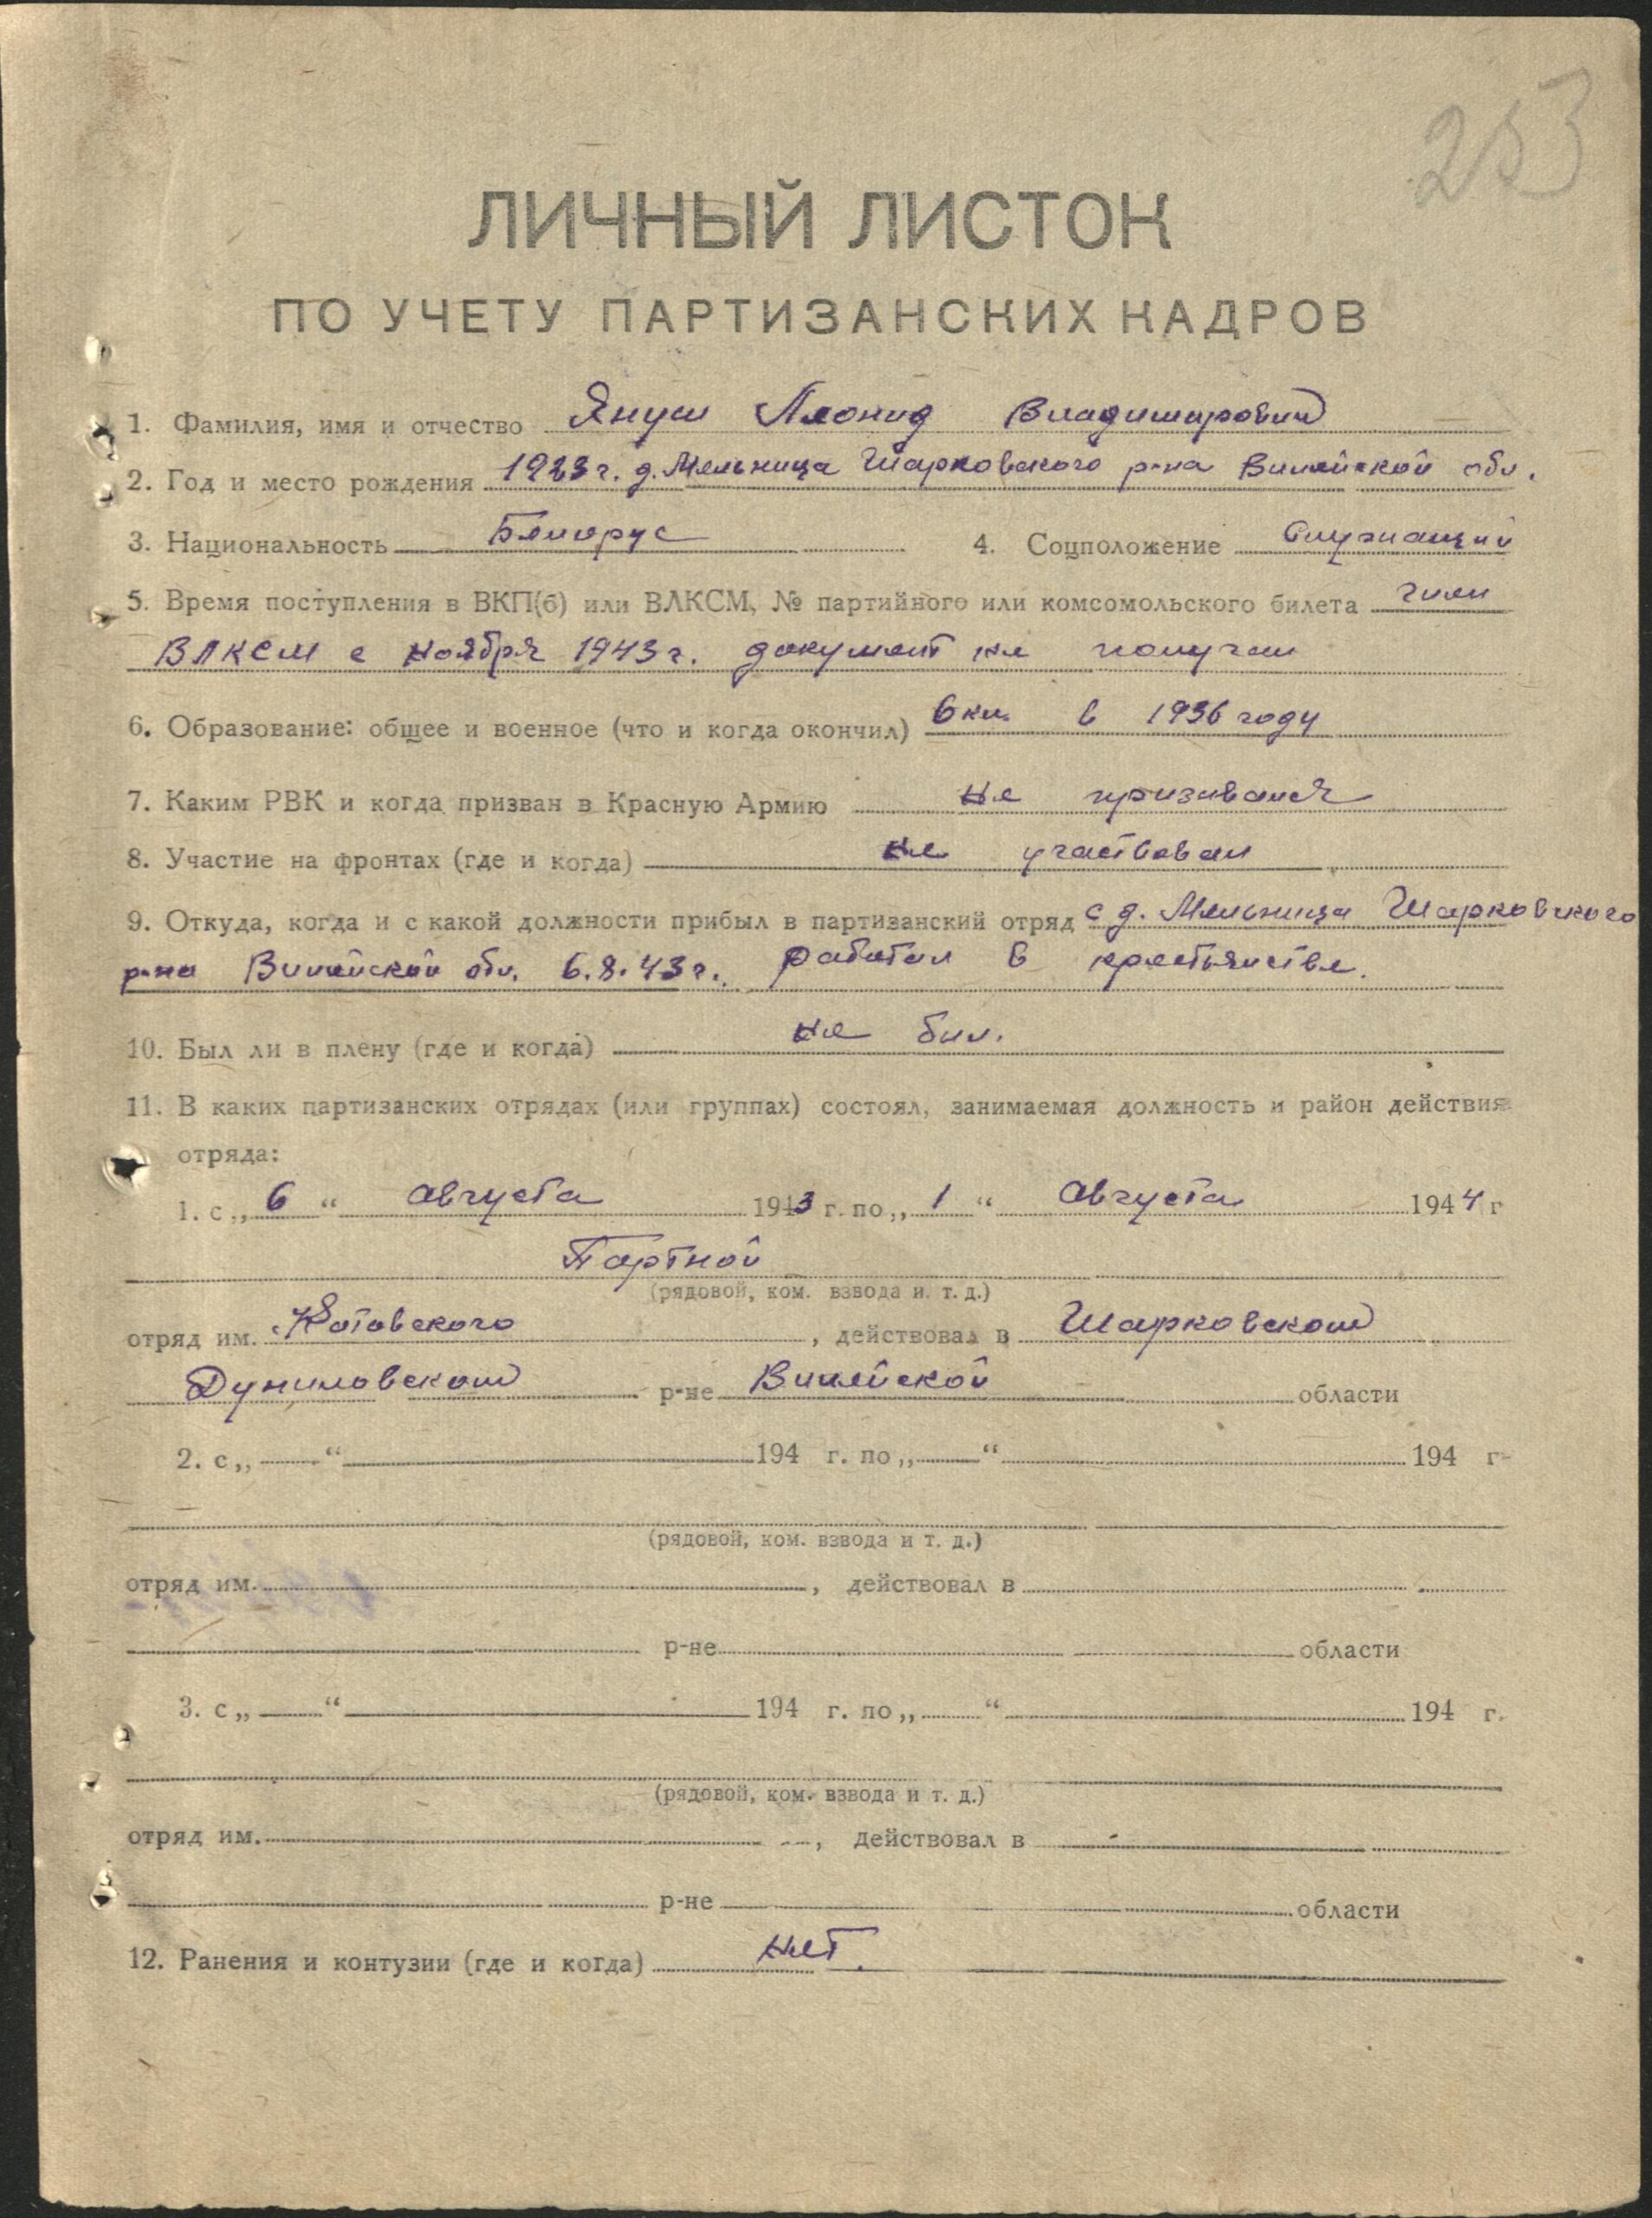 253
ЛИЧНЫЙ ЛИСТОК
ПО УЧЕТУ ПАРТИЗАНСКИХ КАДРОВ
1. Фамилия, имя и отчество Януш Леонид Владимирович
2. Год и место рождения 1923 г. д. Мельница Шарковского р-на Вилейской обл.
3. Национальность Белорус 4. Соцположение Служащий
5. Время поступления в ВКП(б) или ВЛКСМ, № партийного или комсомольского билета член
ВЛКСМ с ноября 1943 г. документ не получал
6. Образование: общее и военное (что и когда окончил) 6 кл. в 1936 году
7. Каким РВК и когда призван в Красную Армию не призывался
8. Участие на фронтах (где и когда) не участвовал
9. Откуда, когда и с какой должности прибыл в партизанский отряд с д. Мельница Шарковского
р-на Вилейской обл. 6.8.43 г. работал в крестьянстве.
10. Был ли в плену (где и когда) не был.
11. В каких партизанских отрядах (или группах) состоял, занимаемая должность и район действия
отряда:
1. с „ 6 “ августа 1943 г. по „ 1 “ августа 1944 г
Портной
(рядовой, ком. взвода и т. д.)
отряд им. Котовского, действовал в Шарковском
Дуниловском р-не Вилейской области
2. с „ “ 194 г. по „ “ 194 г
(рядовой, ком. взвода и т. д.)
отряд им. , действовал в
р-не области
3. с „ “ 194 г. по „ “ 194 г.
(рядовой, ком. взвода и т. д.)
отряд им. , действовал в
р-не области
12. Ранения и контузии (где и когда) нет.